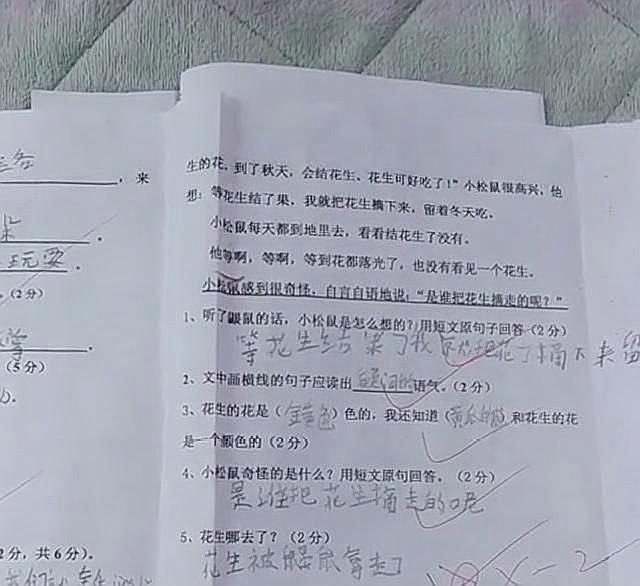 ，来
生的花，到了秋天，会结花生、花生可好吃了！”小松鼠很高兴，他
想：等花生结了果，我就把花生摘下来，留着冬天吃。
小松鼠每天都到地里去，看看结花生了没有。
他等啊，等啊，等到花都落光了，也没有看见一个花生。
小松鼠感到很奇怪，自言自语地说：“是谁把花生摘走的呢？”
1、听了鼹鼠的话，小松鼠是怎么想的？用短文原句子回答（2分）
等花生结果了我就把花了摘下来留
2、文中画横线的句子应读出疑问的语气。（2分）
3、花生的花是（金黄色）色的，我还知道（黄瓜的花）和花生的花
是一个颜色的（2分）
4、小松鼠奇怪的是什么？用短文原句回答。（2分）
是谁把花生摘走的呢
5、花生哪去了？（2分）
花生被鼹鼠拿走了
玩耍。
。（2分）
（5分）
2分，共6分）。